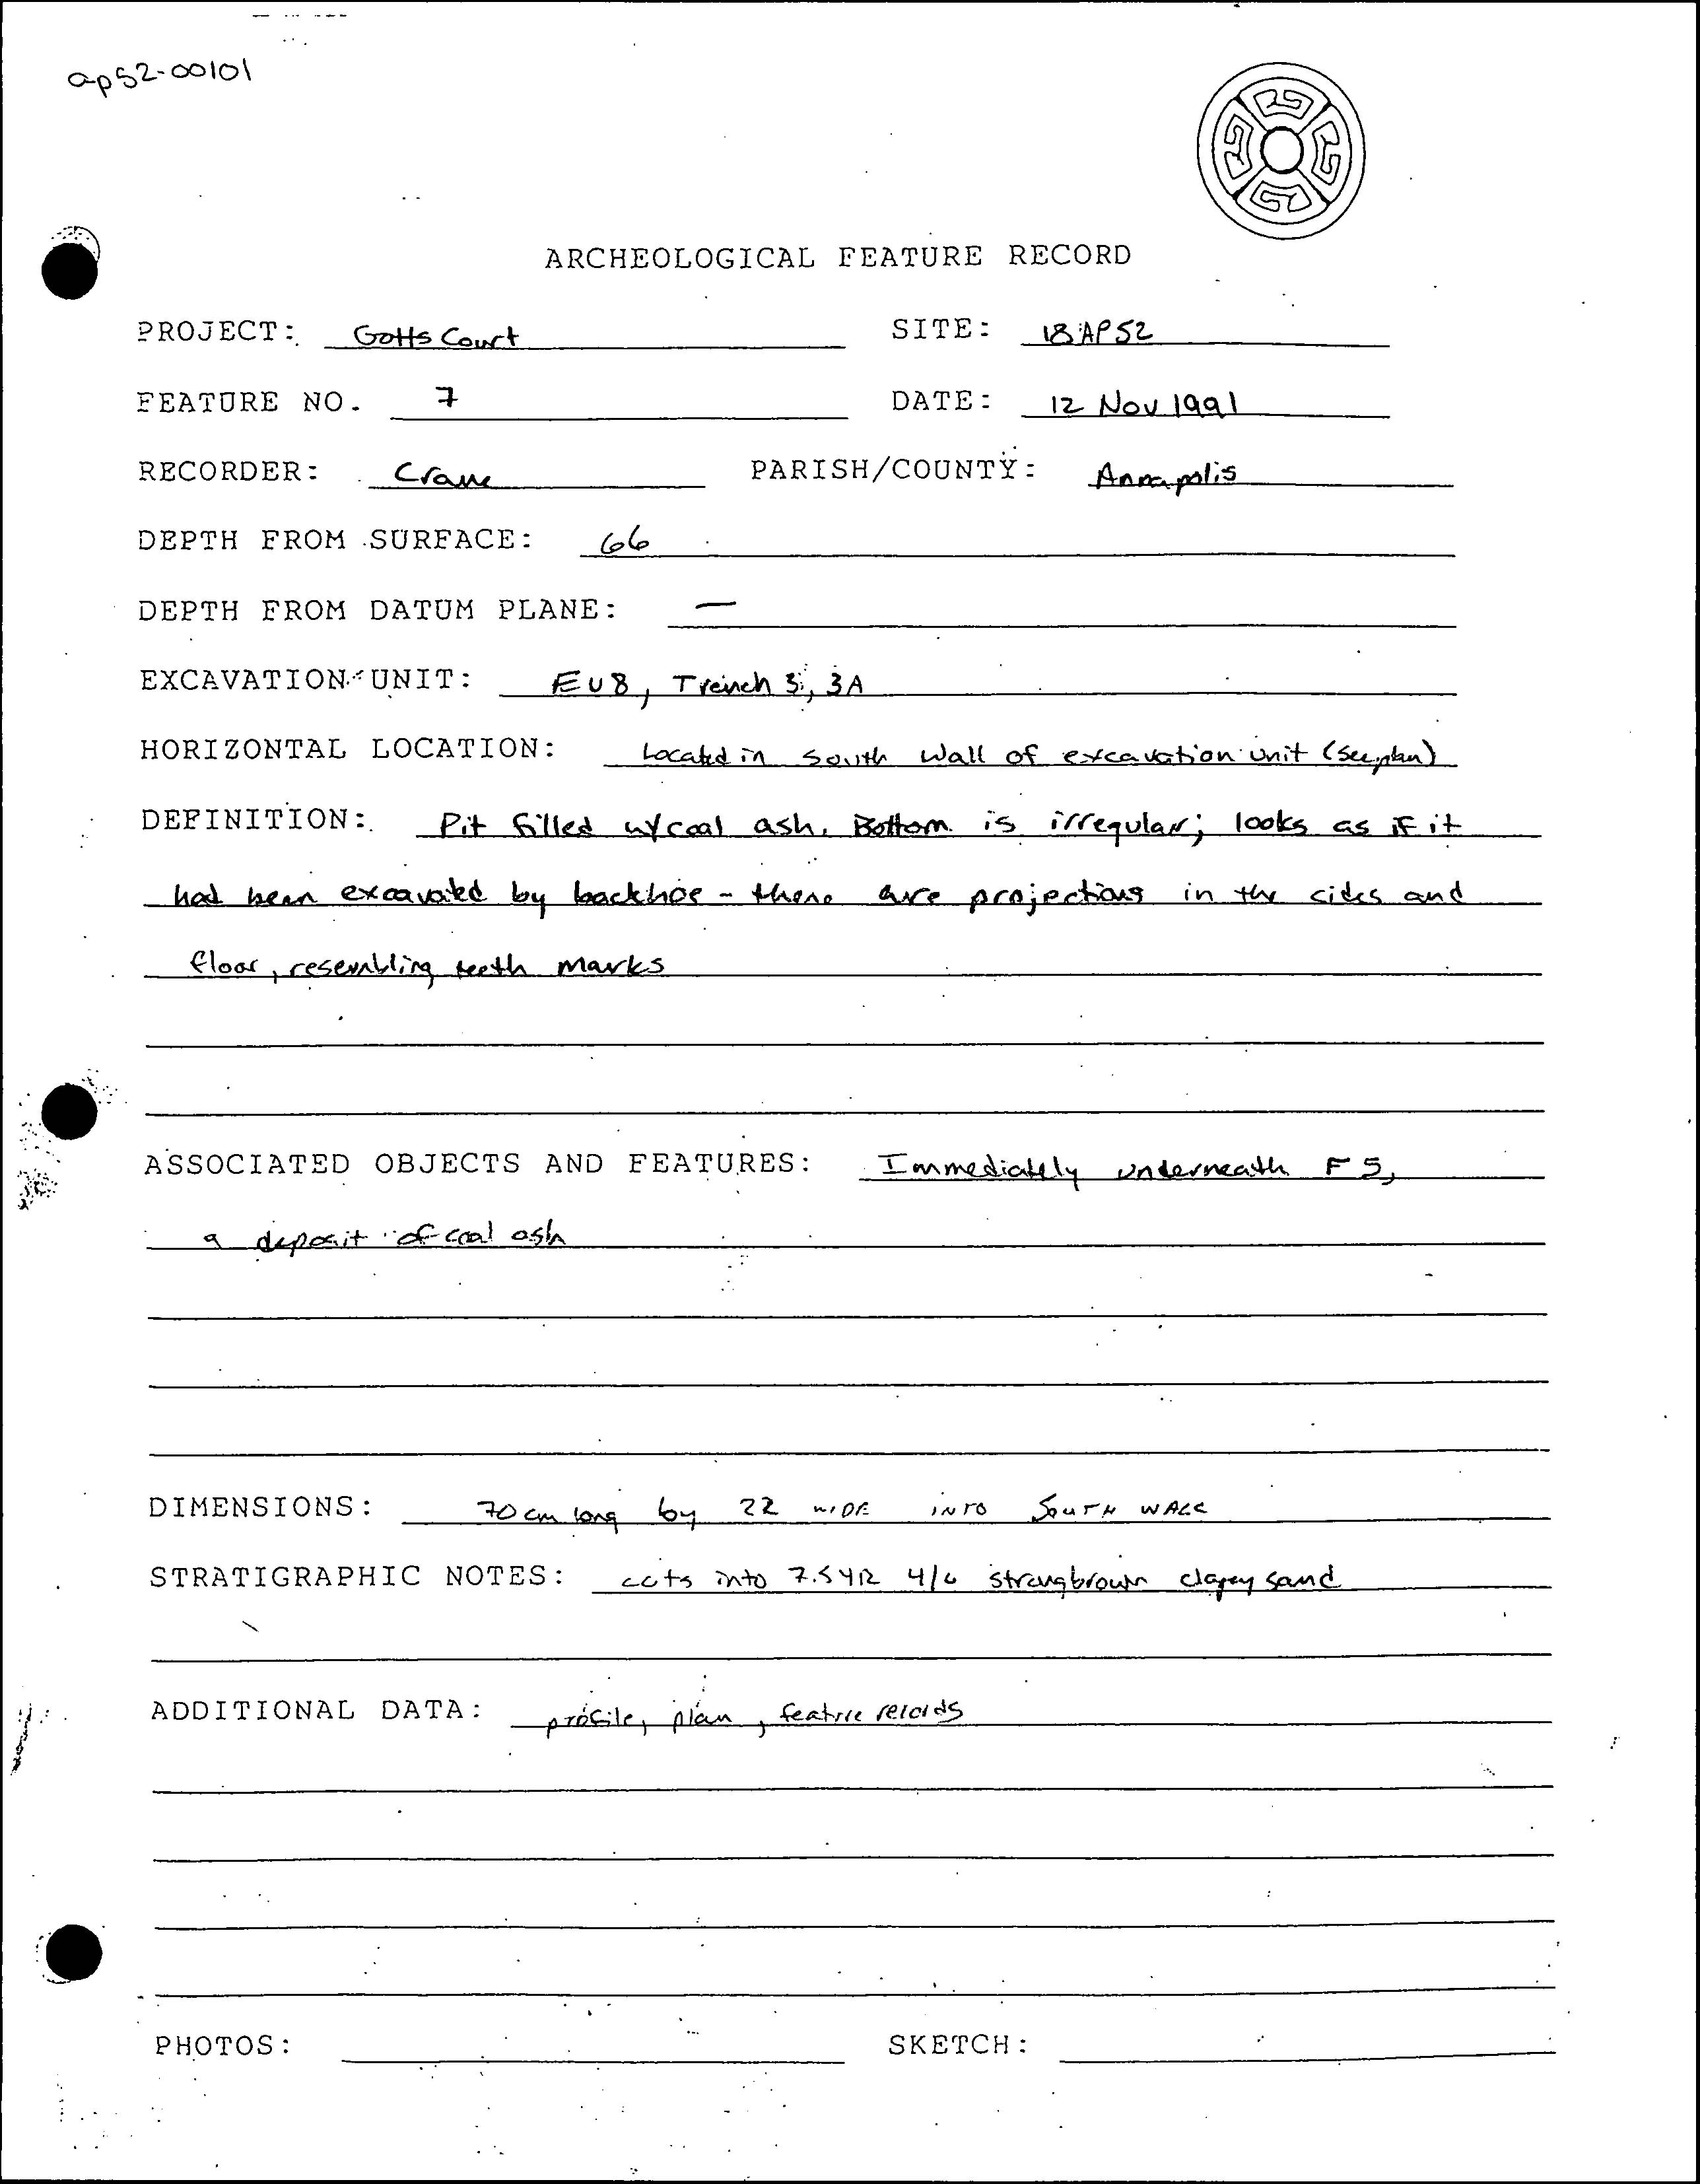 ap52-00101
ARCHEOLOGICAL FEATURE RECORD
PROJECT: Gotts Court SITE: 18AP52
FEATURE NO. 7 DATE: 12 Nov 1991
RECORDER: Crane PARISH/COUNTY: Annapolis
DEPTH FROM SURFACE: 66
DEPTH FROM DATUM PLANE: —
EXCAVATION UNIT: EU8, Trench 3, 3A
HORIZONTAL LOCATION: Located in south wall of excavation unit (see plan)
DEFINITION: Pit filled w/ coal ash. Bottom is irregular; looks as if it
had been excavated by backhoe - there are projections in the sides and
floor, resembling teeth marks
ASSOCIATED OBJECTS AND FEATURES: Immediately underneath F 5,
a deposit of coal ash
DIMENSIONS: 70 cm long by 22 WIDE INTO SOUTH WALL
STRATIGRAPHIC NOTES: cuts into 7.5YR 4/6 strong brown clayey sand
ADDITIONAL DATA: profile, plan, feature records
PHOTOS: SKETCH: